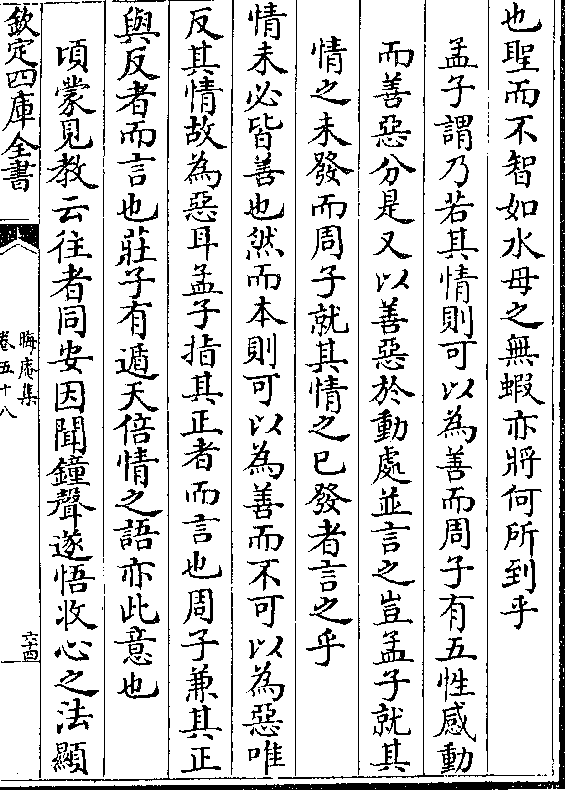 也聖而不智如水母之無蝦亦將何所到乎
孟子謂乃若其情則可以為善而周子有五性感動
而善惡分是又以善惡於動處並言之豈孟子就其
情之未發而周子就其情之已發者言之乎
情未必皆善也然而本則可以為善而不可以為惡唯
反其情故為惡耳孟子指其正者而言也周子兼其正
與反者而言也莊子有遁天倍情之語亦此意也
頃蒙見教云往者同安因聞鐘聲遂悟收心之法顯
欽定四庫全書
晦庵集
卷五十八
六十四